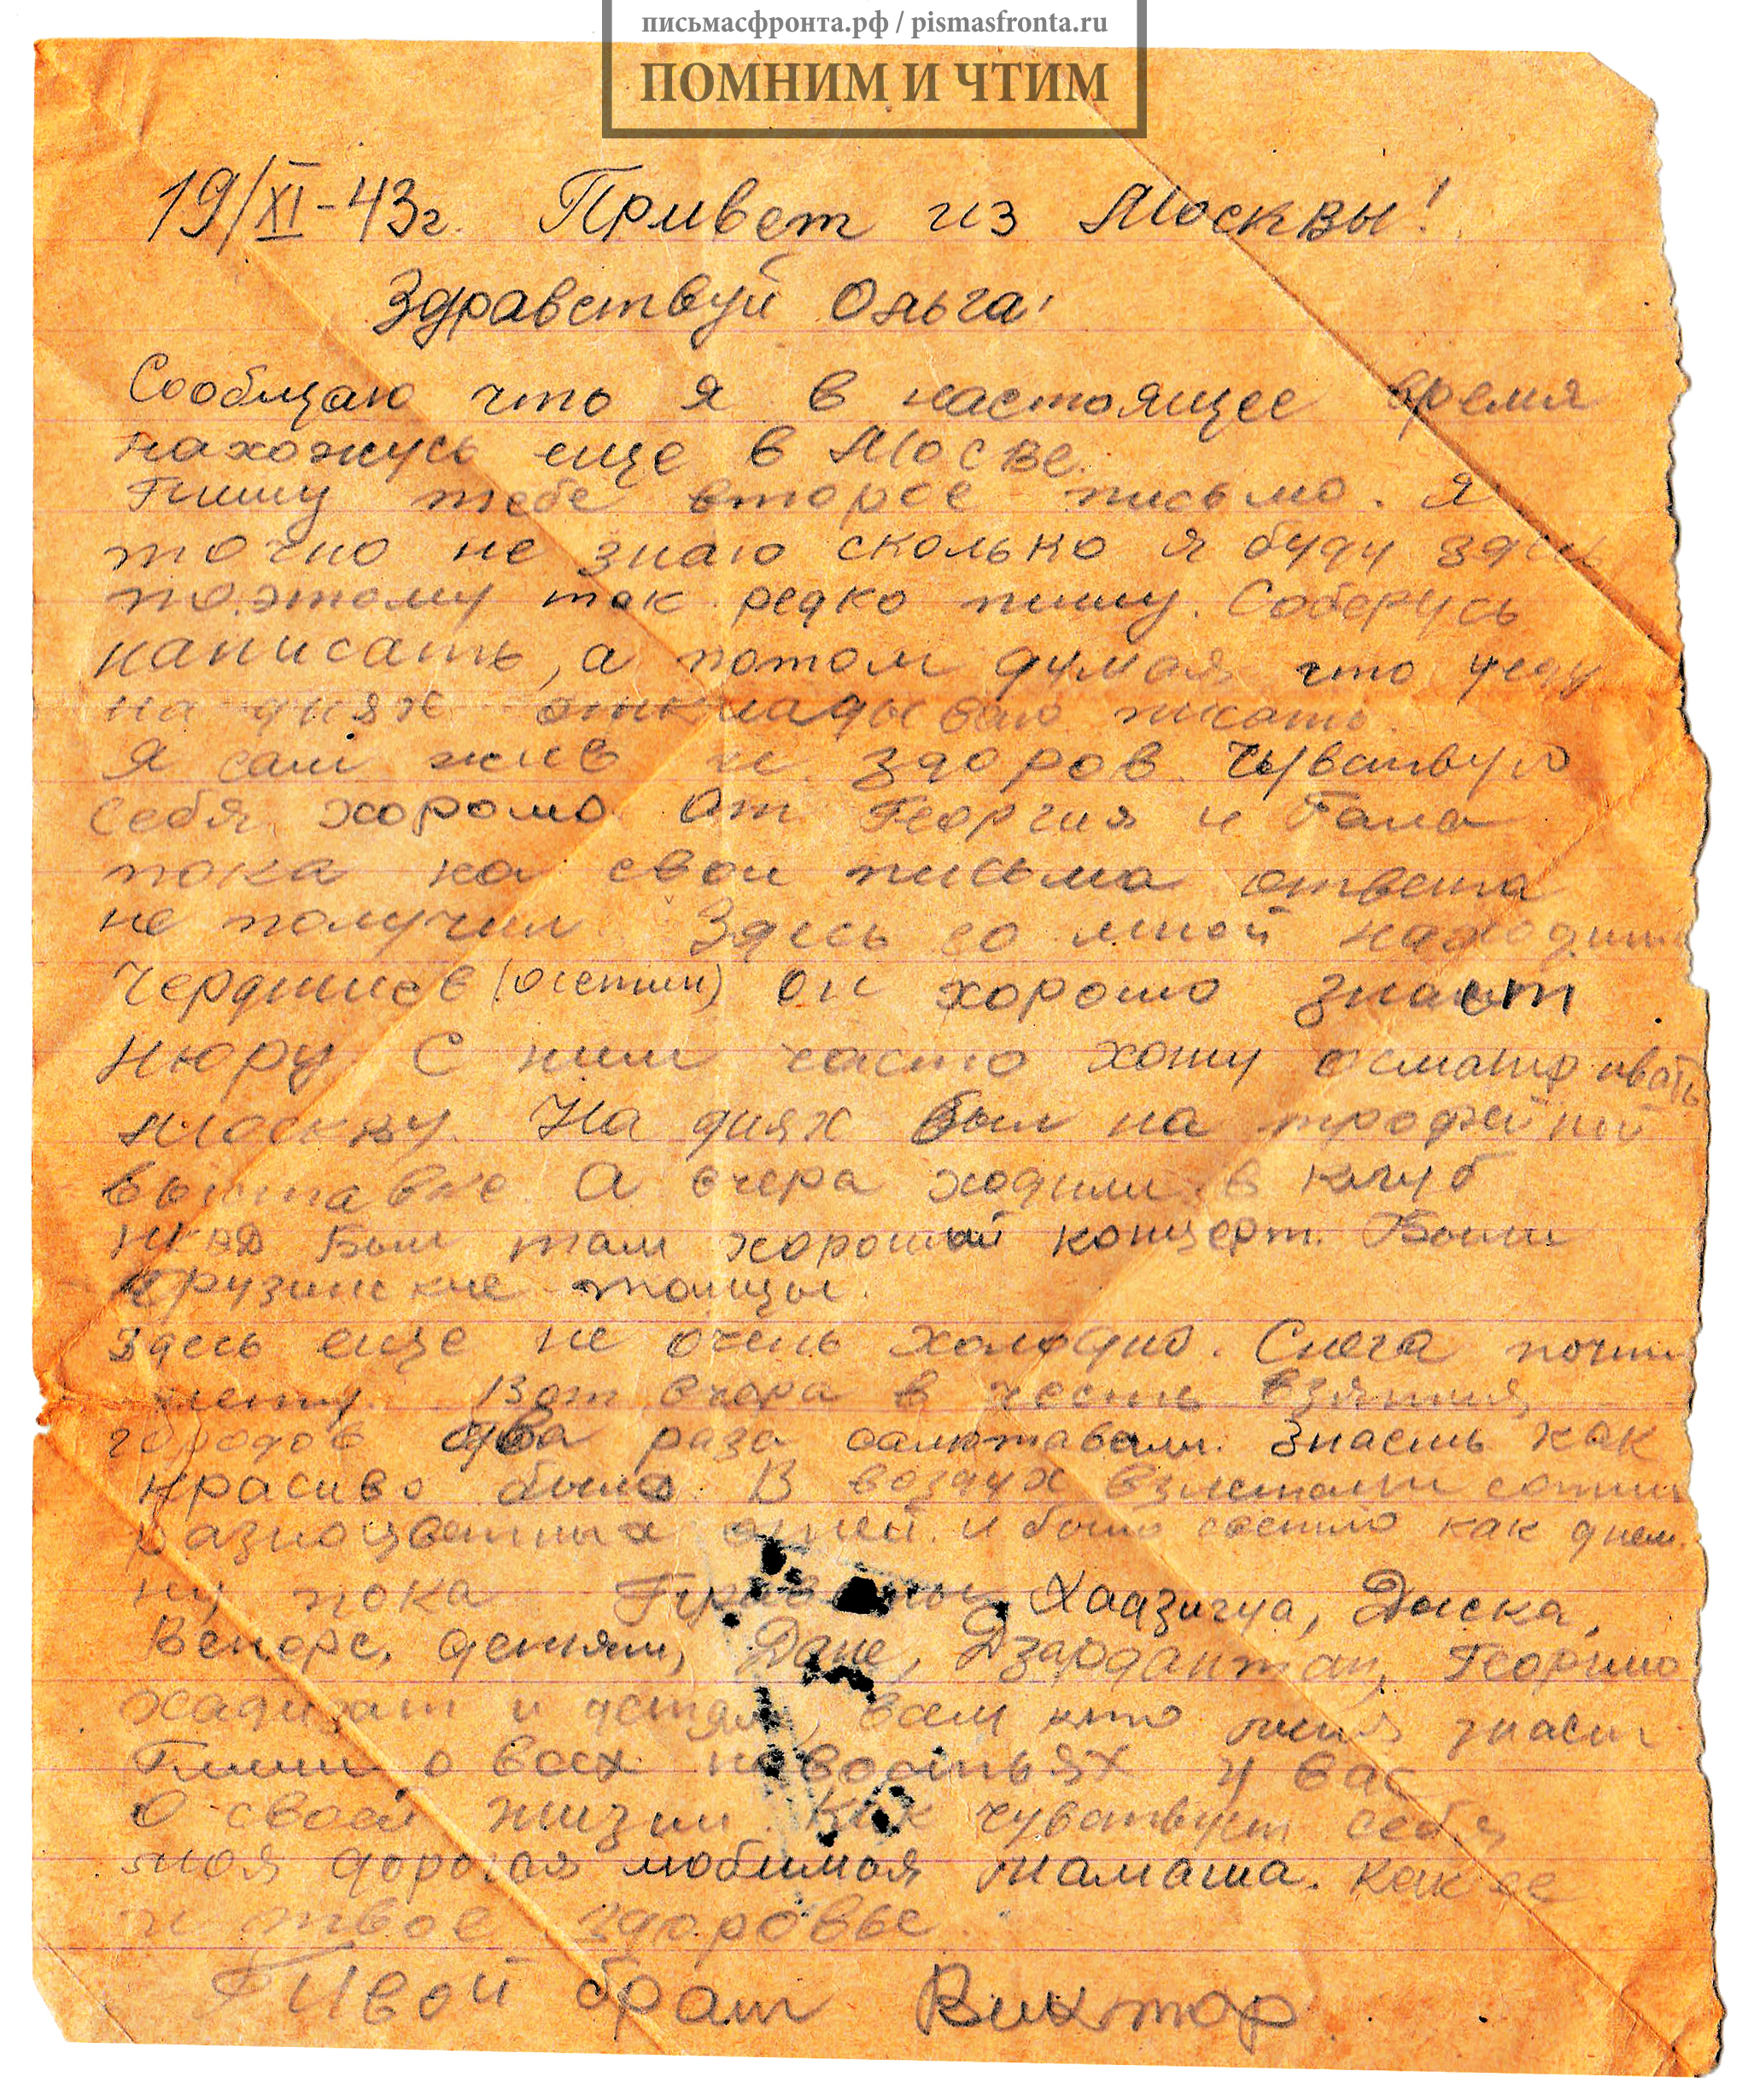 письмасфронта.рф / pismasfronta.ru
ПОМНИМ И ЧТИМ
19/XI-43г. Привет из Москвы!
Здравствуй Ольга!
Сообщаю что я в настоящее время
нахожусь еще в Москве.
Пишу тебе второе письмо. Я
точно не знаю сколько я буду здесь
поэтому так редко пишу. Соберусь
написать, а потом думая что уеду
на днях откладываю писать.
Я сам жив и здоров. Чувствую
себя хорошо. От Георгия и
пока на свои письма ответа
не получил. Здесь со мной находится
(осетин) он хорошо знает
Нюру. С ним часто хожу осматривать
Москву. На днях был на трофейной
выставке. А вчера ходили в клуб
НКВД Был там хороший концерт. Были
грузинские танцы.
Здесь еще не очень холодно. Снега почти
нету. Вот вчера в честь взятия
городов два раза салютовали. Знаешь как
красиво было. В воздух взлетали сотни
разноцветных огней и было светло как днем.
Ну пока Хадзигуа, Дыска,
Венере, детям, Дане, Георгию
Хадизат и детям, всем кто меня знает
Пиши о всех новостьях у вас
О своей жизни. Как чувствует себя
моя дорогая любимая мамаша. Как ее
и твое здоровье.
Твой брат Виктор.